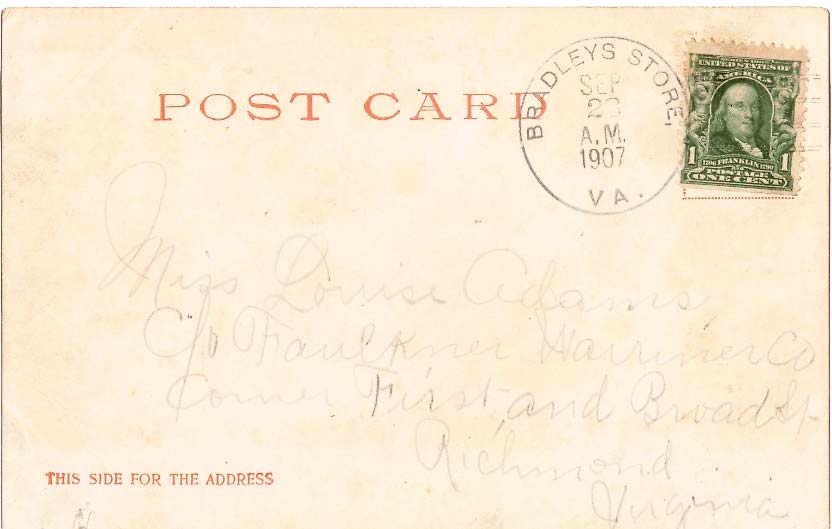 POST CARD
BRADLEYS STORE,
SEP
23
A.M.
1907
VA.
SERIES 1902
UNITED STATES OF
AMERICA
1 1706 FRANKLIN 1790 1
POSTAGE
ONE CENT
Miss Louise Adams,
C/o Faulkner Warriner Co
Corner First, and Broad St.
Richmond
Virginia
THIS SIDE FOR THE ADDRESS